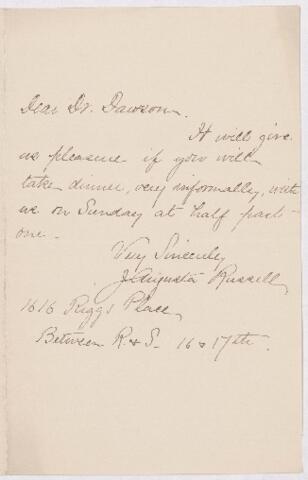 Dear Dr. Dawson.
It will give
us pleasure if you will
take dinner, very informally, with
us on Sunday at half past
one.
Very Sincerely
J. Augusta Russell
1616 Riggs Place
Between R. & S. 16 & 17th.